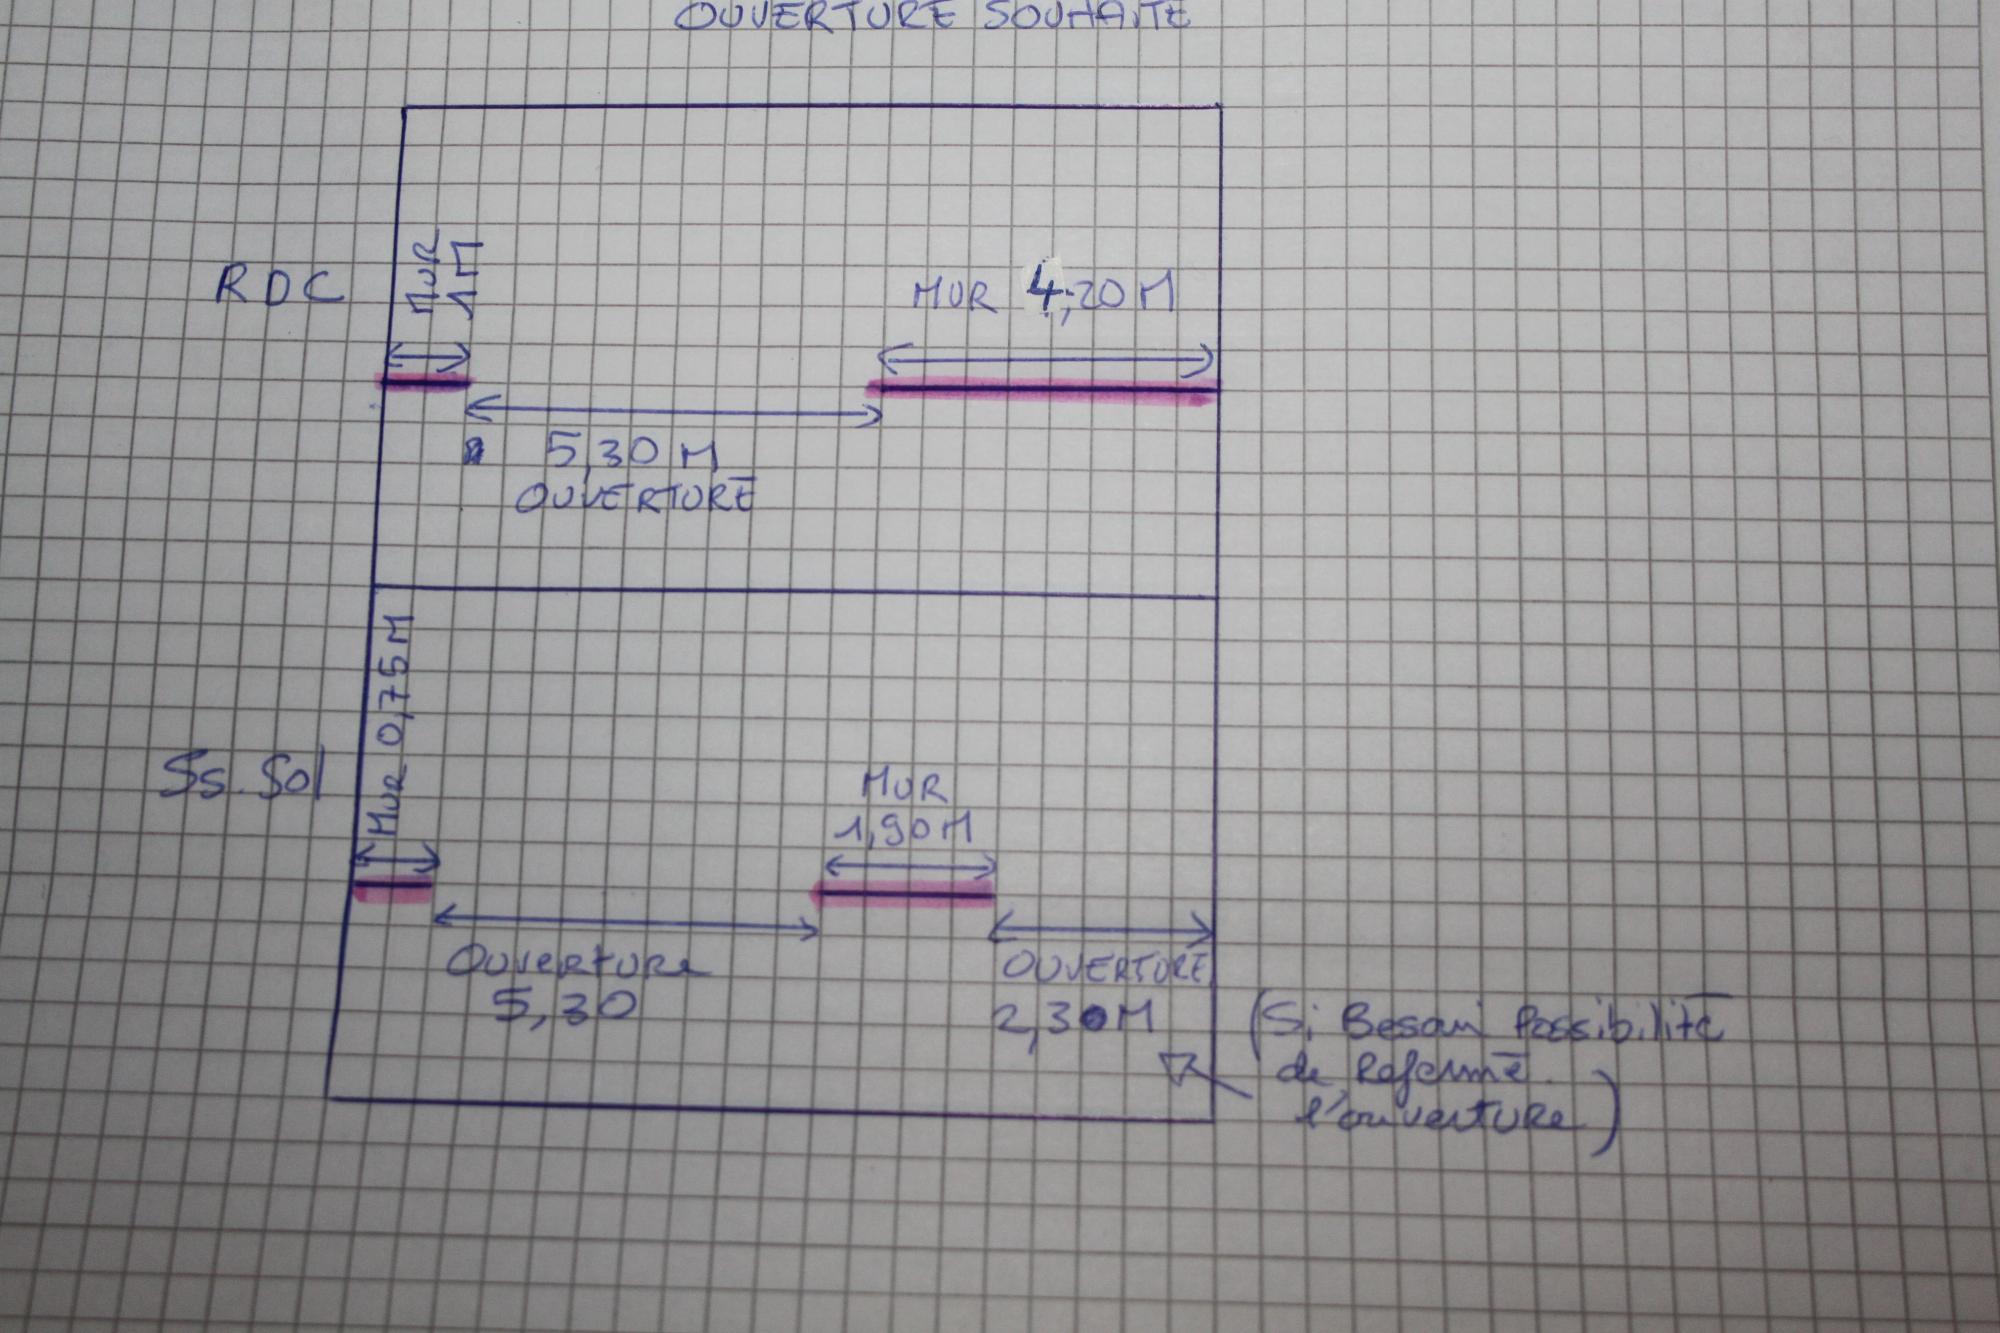 OUVERTURE SOUHAITE
RDC
MUR
1M
MUR 4,20 M
5,30 M
OUVERTURE
Ss. Sol
MUR 0,75M
MUR
1,90M
Ouverture
5,30
OUVERTURE
2,30M
(Si Besoin Possibilité
de Refermé
l'ouverture)